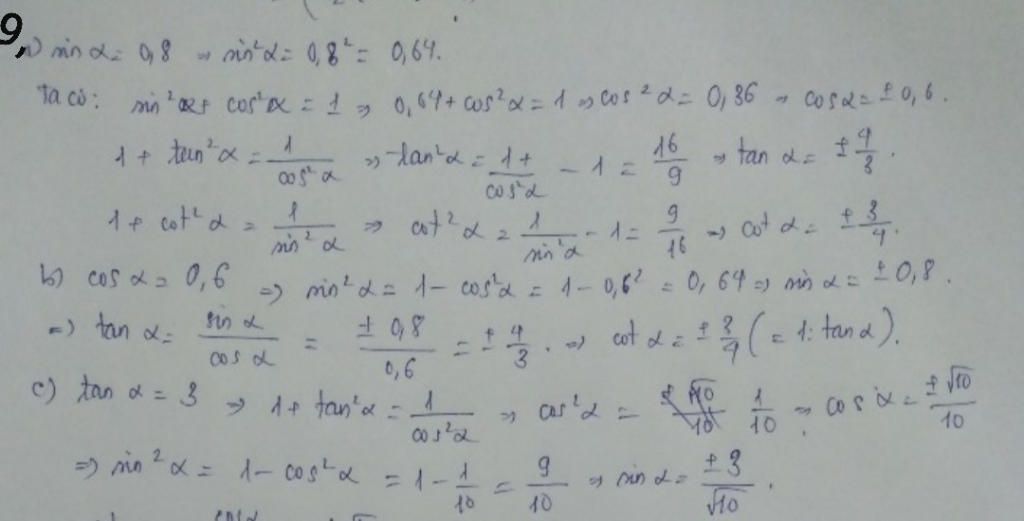 9,
a) sin α = 0,8 ⇒ sin²α = 0,8² = 0,64.
Ta có: sin²α + cos²α = 1 ⇒ 0,64 + cos²α = 1 ⇒ cos²α = 0,36 ⇒ cos α = ± 0,6.
1 + tan²α = 1/cos²α ⇒ tan²α = 1+/cos²α − 1 = 16/9 ⇒ tan α = ± 4/3.
1 + cot²α = 1/sin²α ⇒ cot²α = 1/sin²α − 1 = 9/16 ⇒ cot α = ± 3/4.
b) cos α = 0,6 ⇒ sin²α = 1 − cos²α = 1 − 0,6² = 0,64 ⇒ sin α = ± 0,8.
⇒ tan α = sin α/cos α = ± 0,8/0,6 = ± 4/3. ⇒ cot α = ± 3/4 (= 1 : tan α).
c) tan α = 3 ⇒ 1 + tan²α = 1/cos²α ⇒ cos²α = 1/10 ⇒ cos α = ±√10/10
⇒ sin²α = 1 − cos²α = 1 − 1/10 = 9/10 ⇒ sin α = ±3/√10.